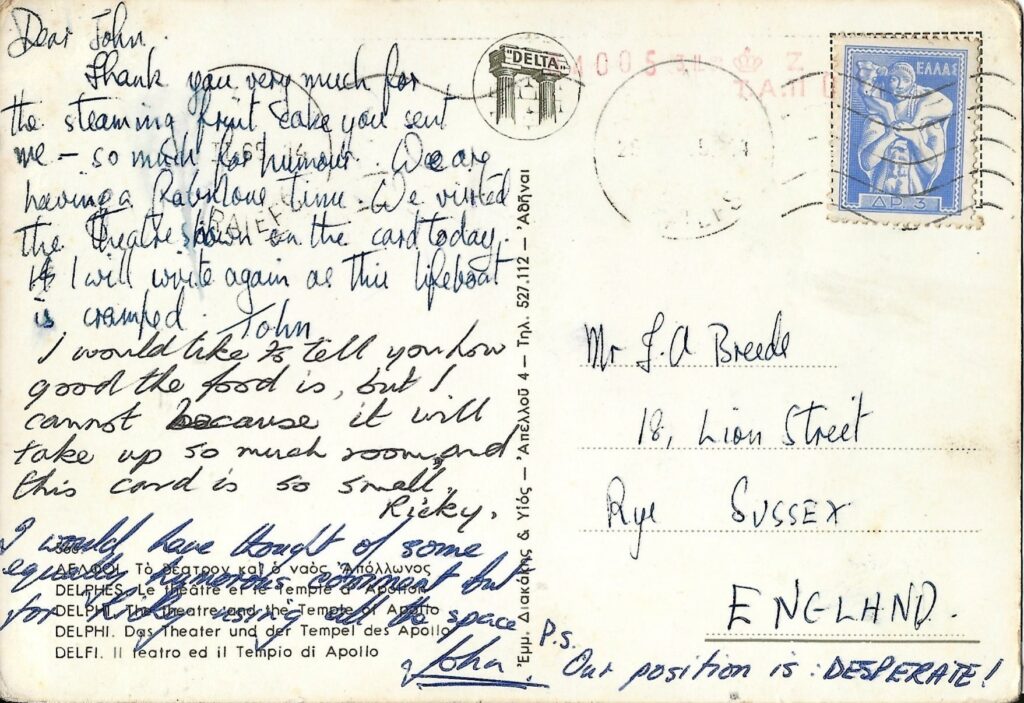 Dear John.
Thank you very much for
the steaming fruit cake you sent
me – so much for humour. We are
having a fabulous time. We visited
the theatre shown on the card today.
I will write again as this lifeboat
is cramped. John
I would like to tell you how
good the food is, but I
cannot because it will
take up so much room, and
this card is so small.
Ricky.
I would have thought of some
equally humorous comment but
for Ricky using all the space
John
ΔΕΛΦΟΙ. Τὸ θέατρον καὶ ὁ ναὸς Ἀπόλλωνος
DELPHES. Le théatre et le Temple d'Apollon
DELPHI. The theatre and the Temple of Apollo
DELPHI. Das Theater und der Tempel des Apollo
DELFI. Il teatro ed il Tempio di Apollo
"DELTA"
Ἐμμ. Διακάκης & Υἱός – Ἀπέλλοῦ 4 – Τηλ. 527.112 – Ἀθῆναι
ΕΛΛΑΣ
ΔΡ. 3
Mr J. A Breeds
18, Lion Street
Rye SUSSEX
ENGLAND.
P.S.
Our position is : DESPERATE!